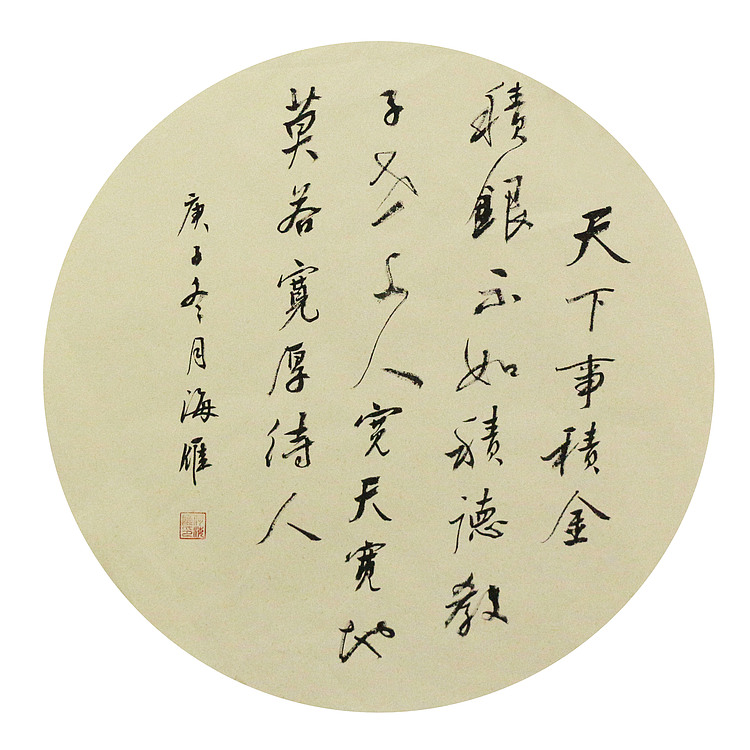 天下事積金
積銀不如積德教
子世上人宽天寬地
莫若寬厚待人
庚子冬月海雁